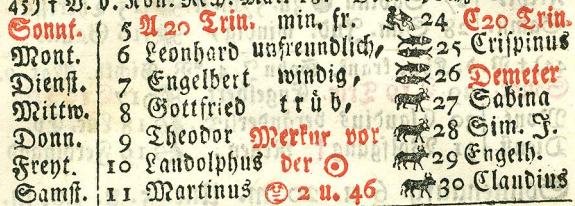 Sonnt. 5 A 20 Trin. min. fr. 24 C20 Trin.
Mont. 6 Leonhard unfreundlich, 25 Crispinus
Dienst. 7 Engelbert windig, 26 Demeter
Mittw. 8 Gottfried trüb, 27 Sabina
Donn. 9 Theodor Merkur vor 28 Sim. J.
Freyt. 10 Landolphus der ☉ 29 Engelh.
Samst. 11 Martinus 2 u. 46 30 Claudius